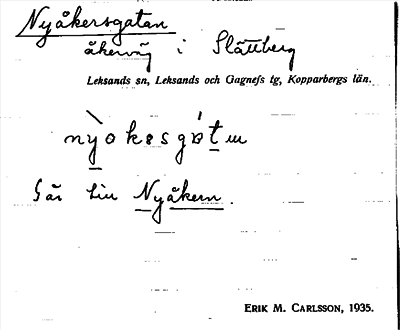 Nyåkersgatan
åkerväg i Slättberg
Leksands sn, Leksands och Gagnefs tg, Kopparbergs län.
Går till Nyåkern.
ERIK M. CARLSSON, 1935.